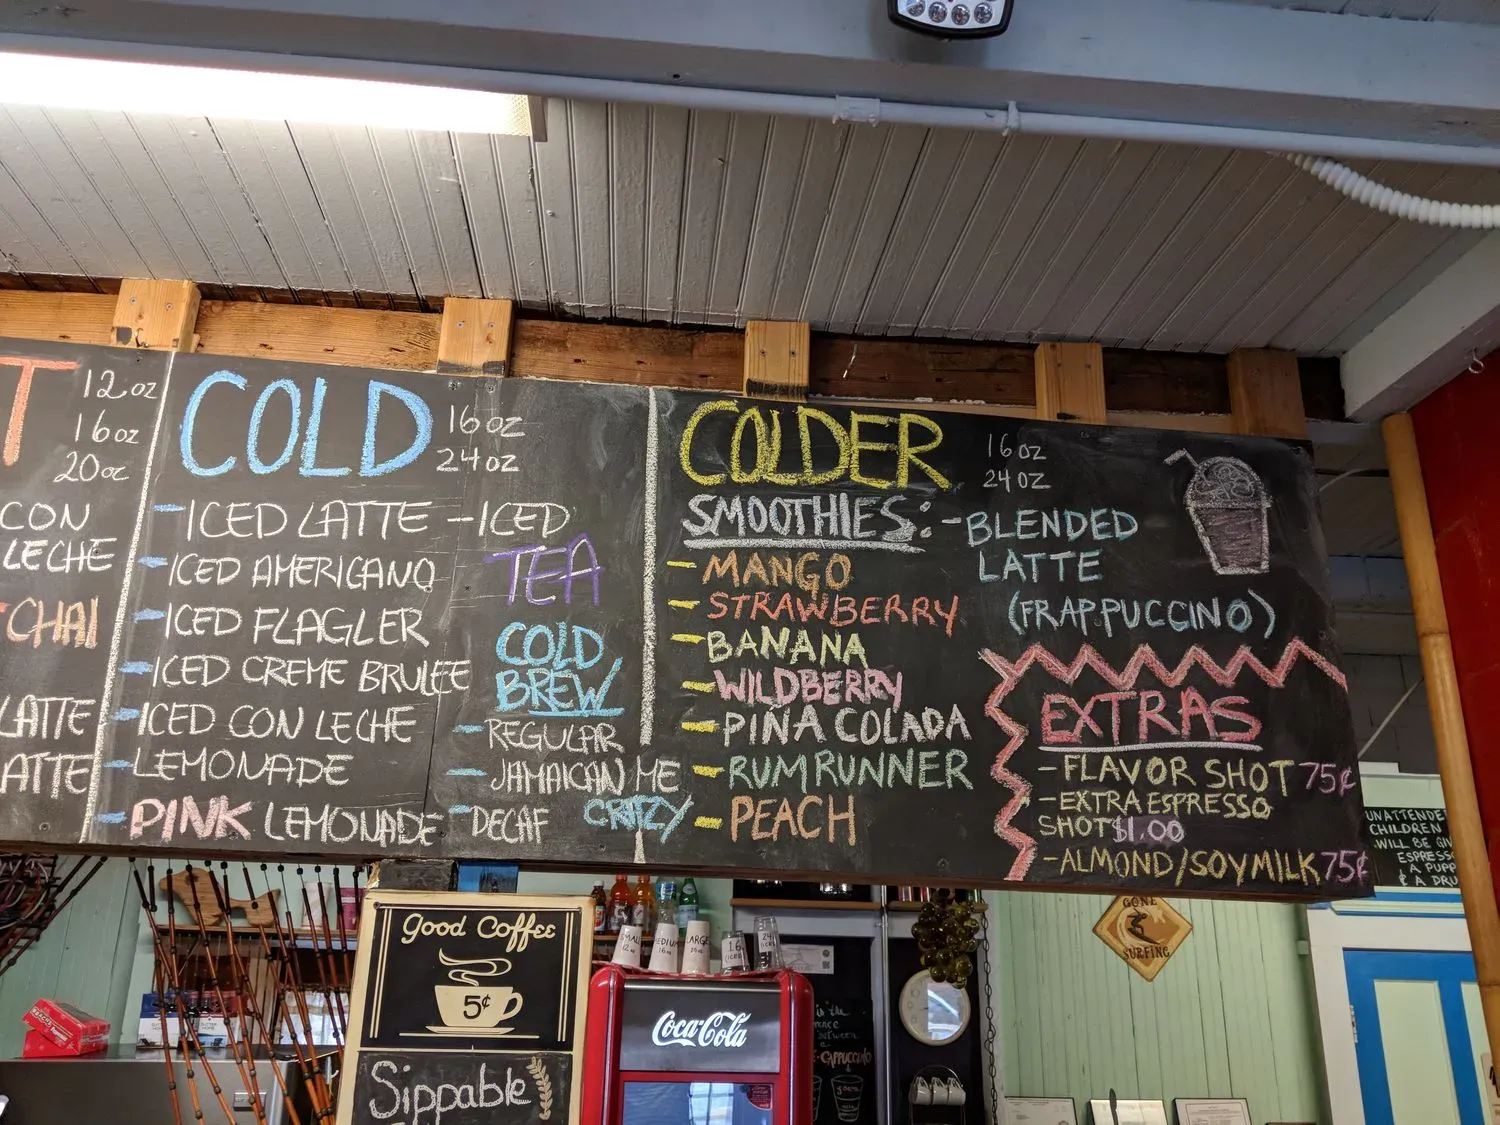 T
12oz
16oz
20oz
CON
LECHE
CHAI
LATTE
ATTE
COLD
16oz
24oz
-ICED LATTE
-ICED AMERICANO
-ICED FLAGLER
-ICED CREME BRULEE
-ICED CON LECHE
-LEMONADE
-PINK LEMONADE
-ICED
TEA
COLD
BREW
-REGULAR
-JAMAICAN ME
CRAZY
-DECAF
COLDER
16oz
24oz
SMOOTHIES:
-MANGO
-STRAWBERRY
-BANANA
-WILDBERRY
-PIÑA COLADA
-RUMRUNNER
-PEACH
-BLENDED
LATTE
(FRAPPUCCINO)
EXTRAS
-FLAVOR SHOT 75¢
-EXTRA ESPRESSO
SHOT $1.00
-ALMOND/SOYMILK 75¢
UNATTENDE
CHILDREN
WILL BE GIV
ESPRESS
A PUPP
& A DRU
Good Coffee
5¢
Sippable
SMALL
12oz
MEDIUM
16oz
LARGE
20oz
16
24
Coca-Cola
GONE
SURFING
is the
between
CAPPUCCINO